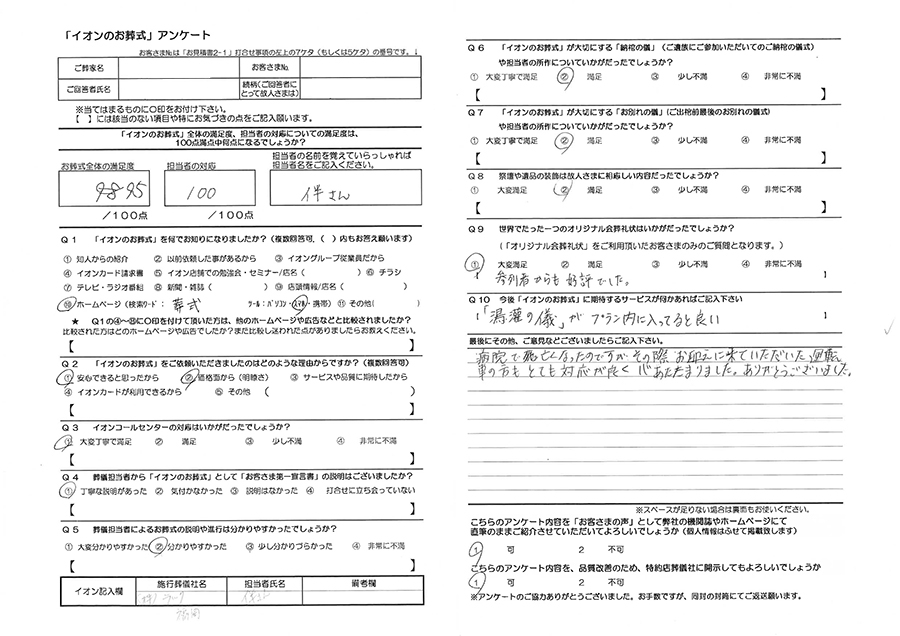 「イオンのお葬式」アンケート
お客さま№は「お見積書2-1」打合せ事項の左上の7ケタ（もしくは5ケタ）の番号です。↓
ご葬家名 お客さま№
ご回答者氏名 続柄(ご回答者にとって故人さまは)
※当てはまるものに○印をお付け下さい。
【　】には該当のない項目や特にお気づきの点をご記入願います。
「イオンのお葬式」全体の満足度、担当者の対応についての満足度は、
100点満点中何点になるでしょうか？
お葬式全体の満足度 担当者の対応 担当者の名前を覚えていらっしゃれば
担当者名をご記入ください。
95 100 伴さん
／100点 ／100点
Q１ 「イオンのお葬式」を何でお知りになりましたか？（複数回答可、（　）内もお答え願います）
① 知人からの紹介 ② 以前依頼した事があるから ③ イオングループ従業員だから
④ イオンカード請求書 ⑤ イオン店舗での勉強会・セミナー/店名（　） ⑥ チラシ
⑦ テレビ・ラジオ番組 ⑧ 新聞・雑誌（　） ⑨ 店頭情報/店名（　）
⑩ ホームページ（検索ワード： 葬式 ツール：パソコン・スマホ・携帯） ⑪ その他（　）
★ Q１の④～⑩に○印を付けて頂いた方は、他のホームページや広告などと比較されましたか？
比較された方はどのホームページや広告でしたか？また比較し迷われた点がありましたらお教えください。
【　】
Q２ 「イオンのお葬式」をご依頼いただきましたのはどのような理由からですか？（複数回答可）
① 安心できると思ったから ② 価格面から（明瞭さ） ③ サービスや品質に期待したから
④ イオンカードが利用できるから ⑤ その他（　）
【　】
Q３ イオンコールセンターの対応はいかがだったでしょうか？
① 大変丁寧で満足 ② 満足 ③ 少し不満 ④ 非常に不満
【　】
Q４ 葬儀担当者から「イオンのお葬式」として「お客さま第一宣言書」の説明はございましたか？
① 丁寧な説明があった ② 気付かなかった ③ 説明はなかった ④ 打合せに立ち会っていない
【　】
Q５ 葬儀担当者によるお葬式の説明や進行は分かりやすかったでしょうか？
① 大変分かりやすかった ② 分かりやすかった ③ 少し分かりづらかった ④ 非常に不満
【　】
イオン記入欄 施行葬儀社名 担当者氏名 備考欄
Q６ 「イオンのお葬式」が大切にする「納棺の儀」（ご遺族にご参加いただいてのご納棺の儀式）
や担当者の所作についていかがだったでしょうか？
① 大変丁寧で満足 ② 満足 ③ 少し不満 ④ 非常に不満
【　】
Q７ 「イオンのお葬式」が大切にする「お別れの儀」（ご出棺前最後のお別れの儀式）
や担当者の所作についていかがだったでしょうか？
① 大変丁寧で満足 ② 満足 ③ 少し不満 ④ 非常に不満
【　】
Q８ 祭壇や遺品の装飾は故人さまに相応しい内容だったでしょうか？
① 大変満足 ② 満足 ③ 少し不満 ④ 非常に不満
【　】
Q９ 世界でたった一つのオリジナル会葬礼状はいかがだったでしょうか？
（「オリジナル会葬礼状」をご利用頂いたお客さまのみのご質問となります。）
① 大変満足 ② 満足 ③ 少し不満 ④ 非常に不満
参列者からも好評でした。
Q１０ 今後「イオンのお葬式」に期待するサービスが何かあればご記入下さい
「湯灌の儀」がプラン内に入ってると良い
最後にその他、ご意見などございましたらご記入下さい。
病院で死亡となったのですが、その際お迎えに来ていただいた運転
車の方もとても対応が良く心あたたまりました。ありがとうございました。
※スペースが足りない場合は裏面もお使いください。
こちらのアンケート内容を「お客さまの声」として弊社の機関誌やホームページにて
直筆のままご紹介させていただいてよろしいでしょうか（個人情報はふせて掲載致します）
1 可 2 不可
こちらのアンケート内容を、品質改善のため、特約店葬儀社に開示してもよろしいでしょうか
1 可 2 不可
※アンケートのご協力ありがとうございました。お手数ですが、同封の封筒にてご返送願います。